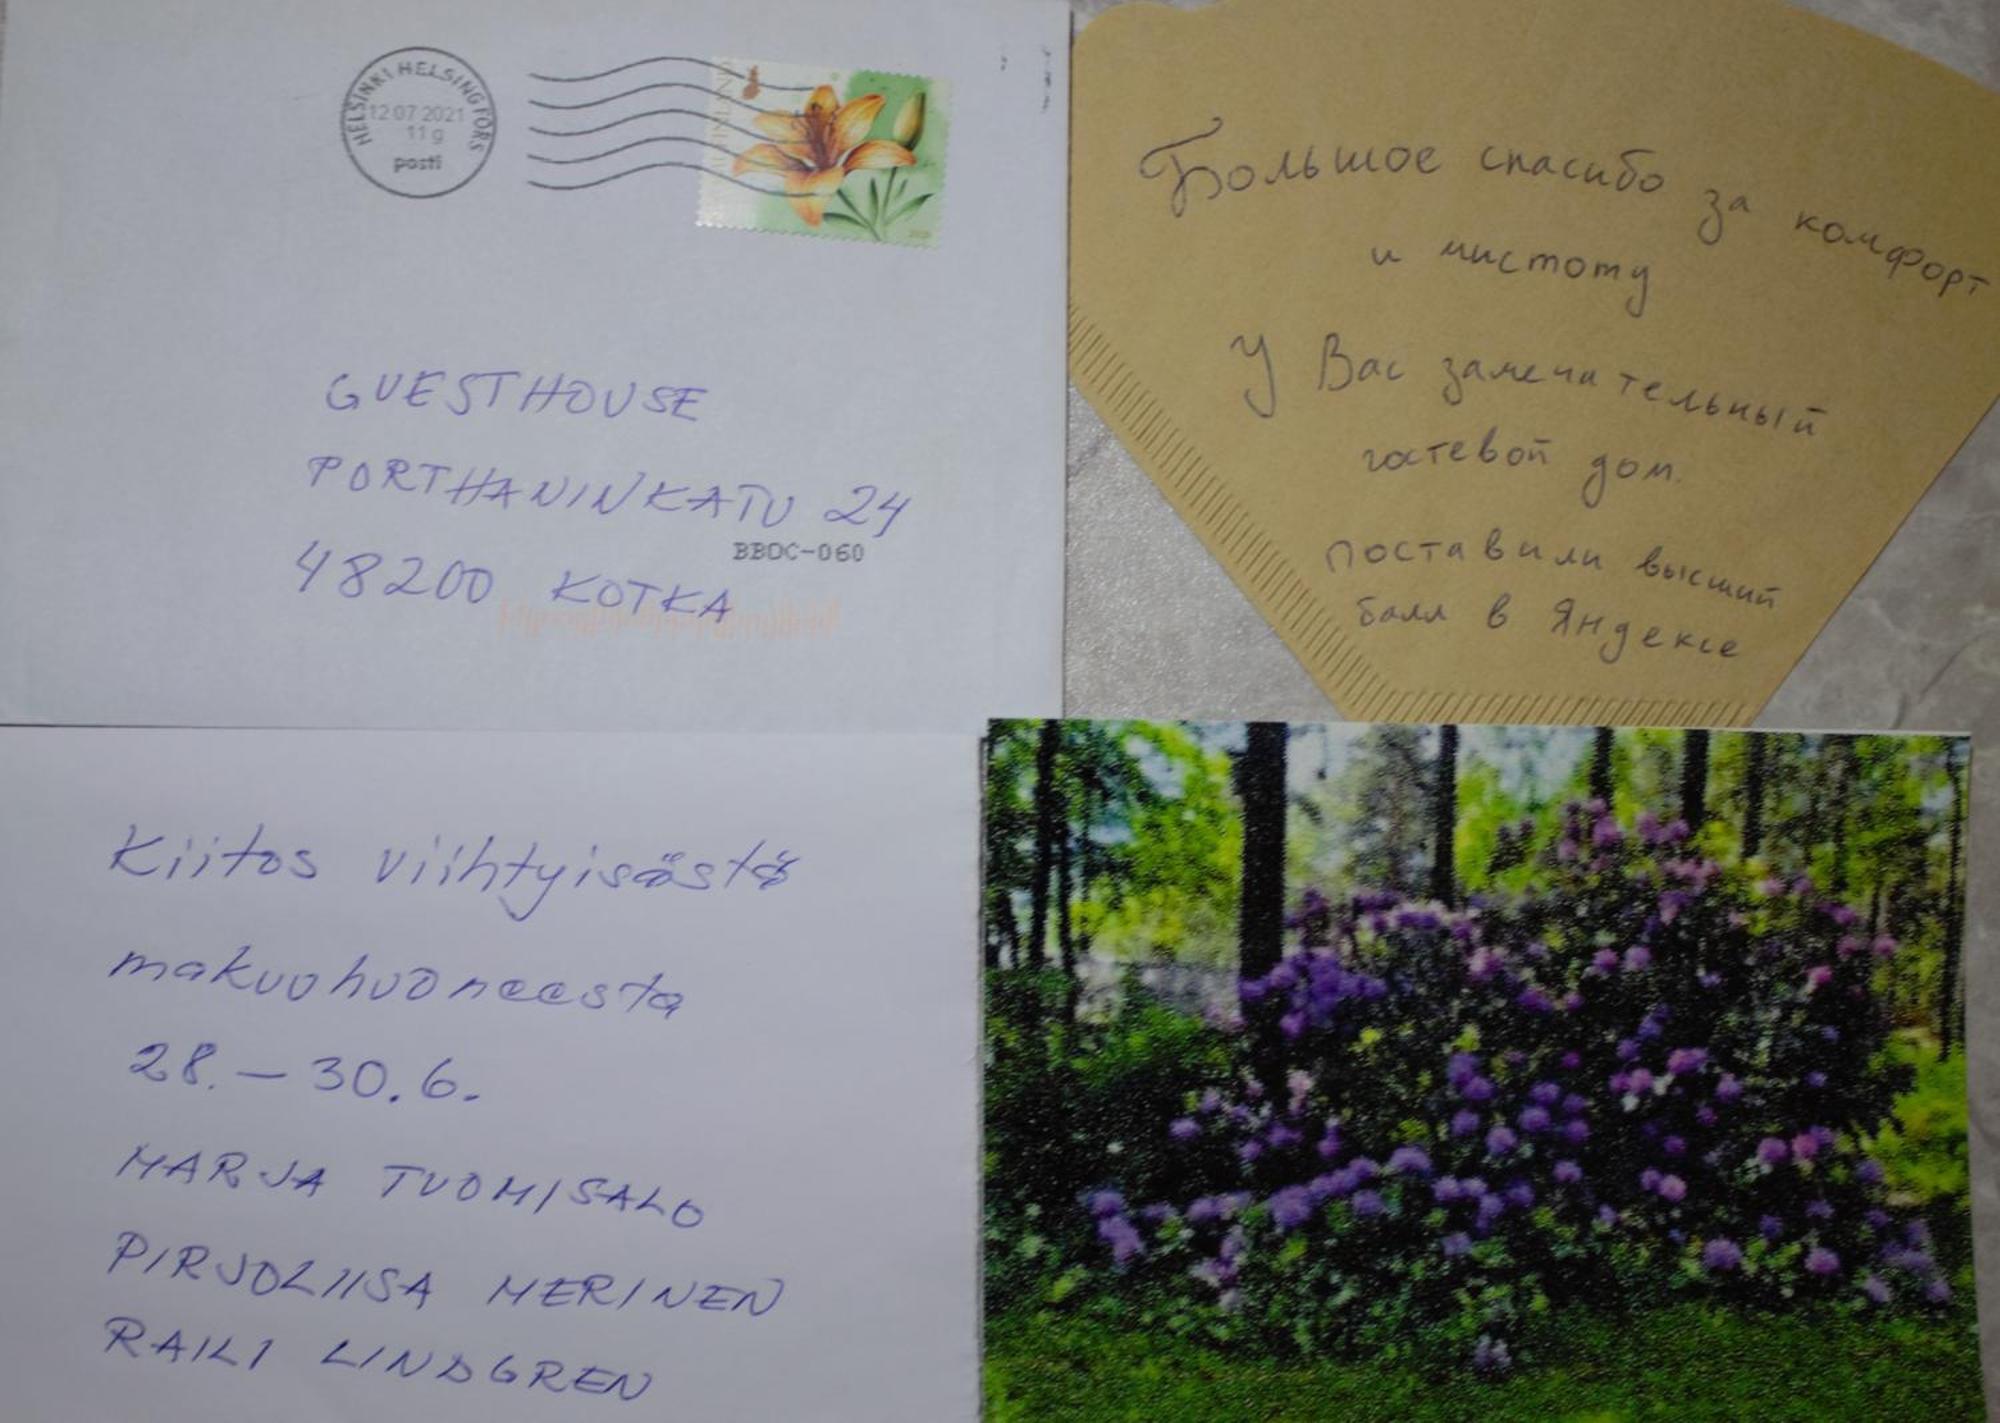 HELSINKI HELSINGFORS
12.07.2021
11 g
posti
FINLAND
GUESTHOUSE
PORTHANINKATU 24
BBDC-060
48200 KOTKA
Большое спасибо за комфорт
и чистоту
У Вас замечательный
гостевой дом.
поставили высший
балл в Яндексе
Kiitos viihtyisästä
makuuhuoneesta
28. – 30.6.
MARJA TUOMISALO
PIRJOLIISA MERINEN
RAILI LINDGREN